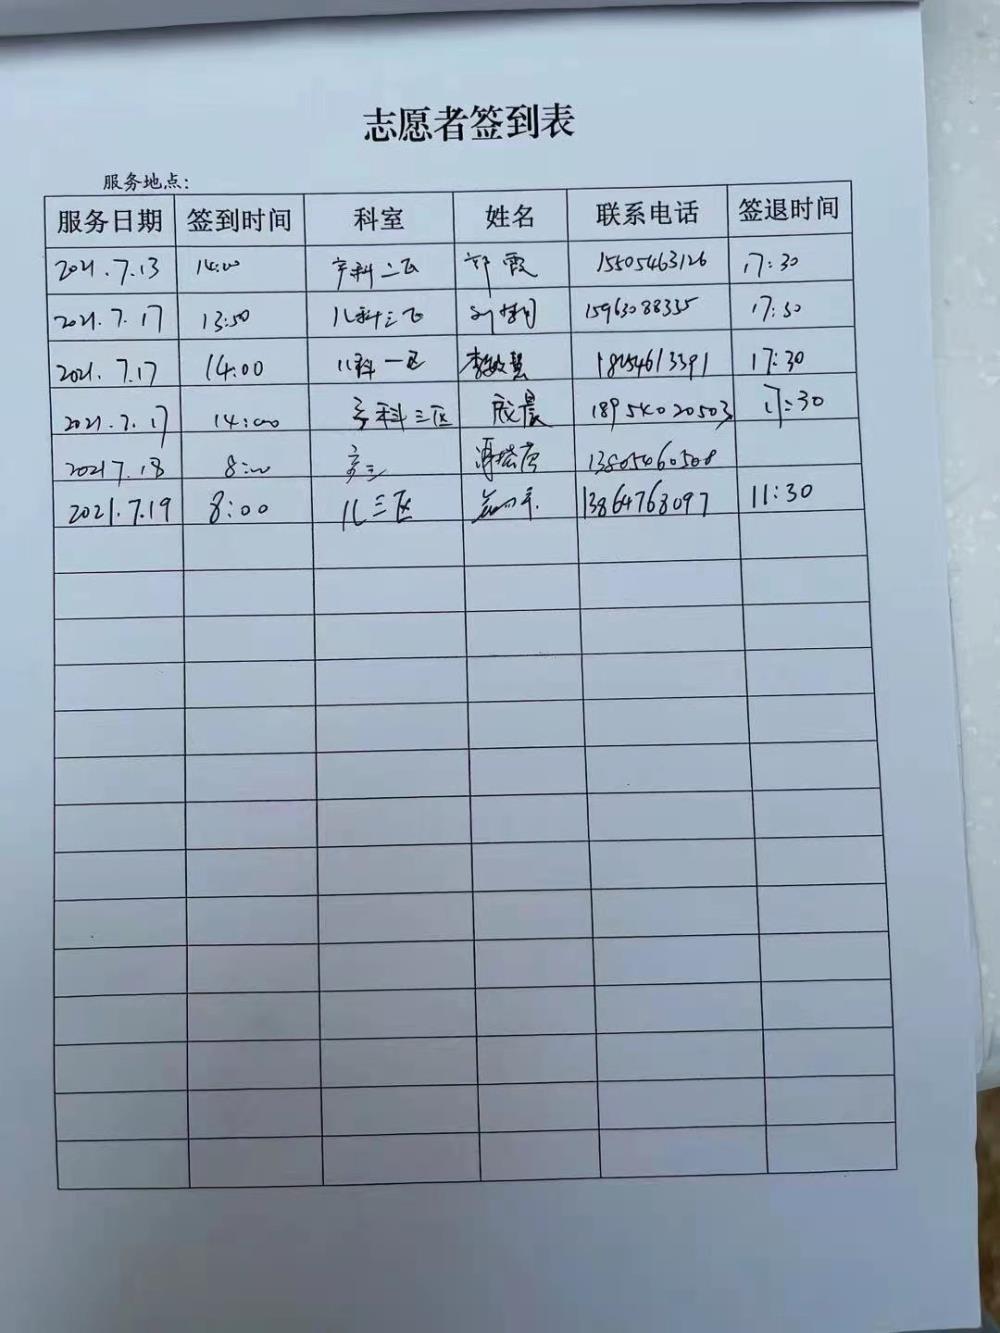 志愿者签到表
服务地点:
服务日期 签到时间 科室 姓名 联系电话 签退时间
2021.7.13 14:00 产科二区 霞 15505463126 17:30
2021.7.17 13:50 儿科三区 17:30
2021.7.17 14:00 儿科一区 李敏慧 18254613391 17:30
2021.7.17 14:00 产科三区 晨 18954020503 17:30
2021 7.18 8:00 产三 13805460508
2021.7.19 8:00 儿三区 13864763097 11:30